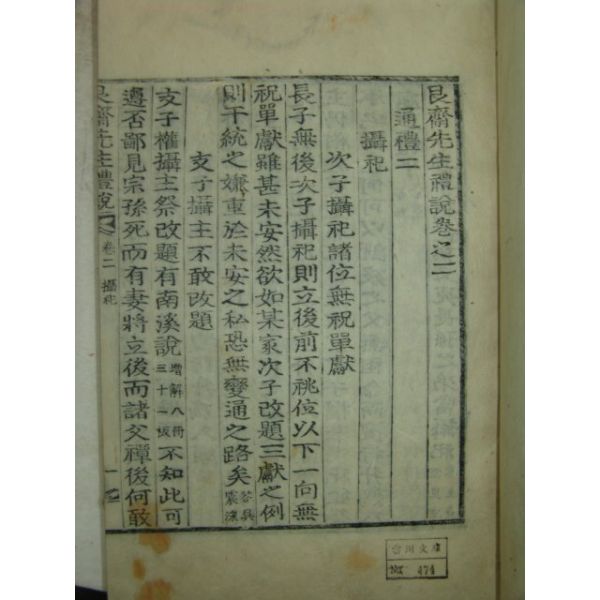 艮齋先生禮說卷之二
通禮二
攝祀
次子攝祀諸位無祝單獻
長子無後次子攝祀則立後前不祧位以下一向無
祝單獻雖甚未安然欲如某家次子改題三獻之例
則干統之嫌重於未安之私恐無變通之路矣答吳震泳
支子攝主不敢改題
支子權攝主祭改題有南溪說增解八冊三十一板不知此可
遵否鄙見宗孫死而有妻將立後而諸父禫後何敢
艮齋先生禮說 卷二 攝祀 一
文庫
474